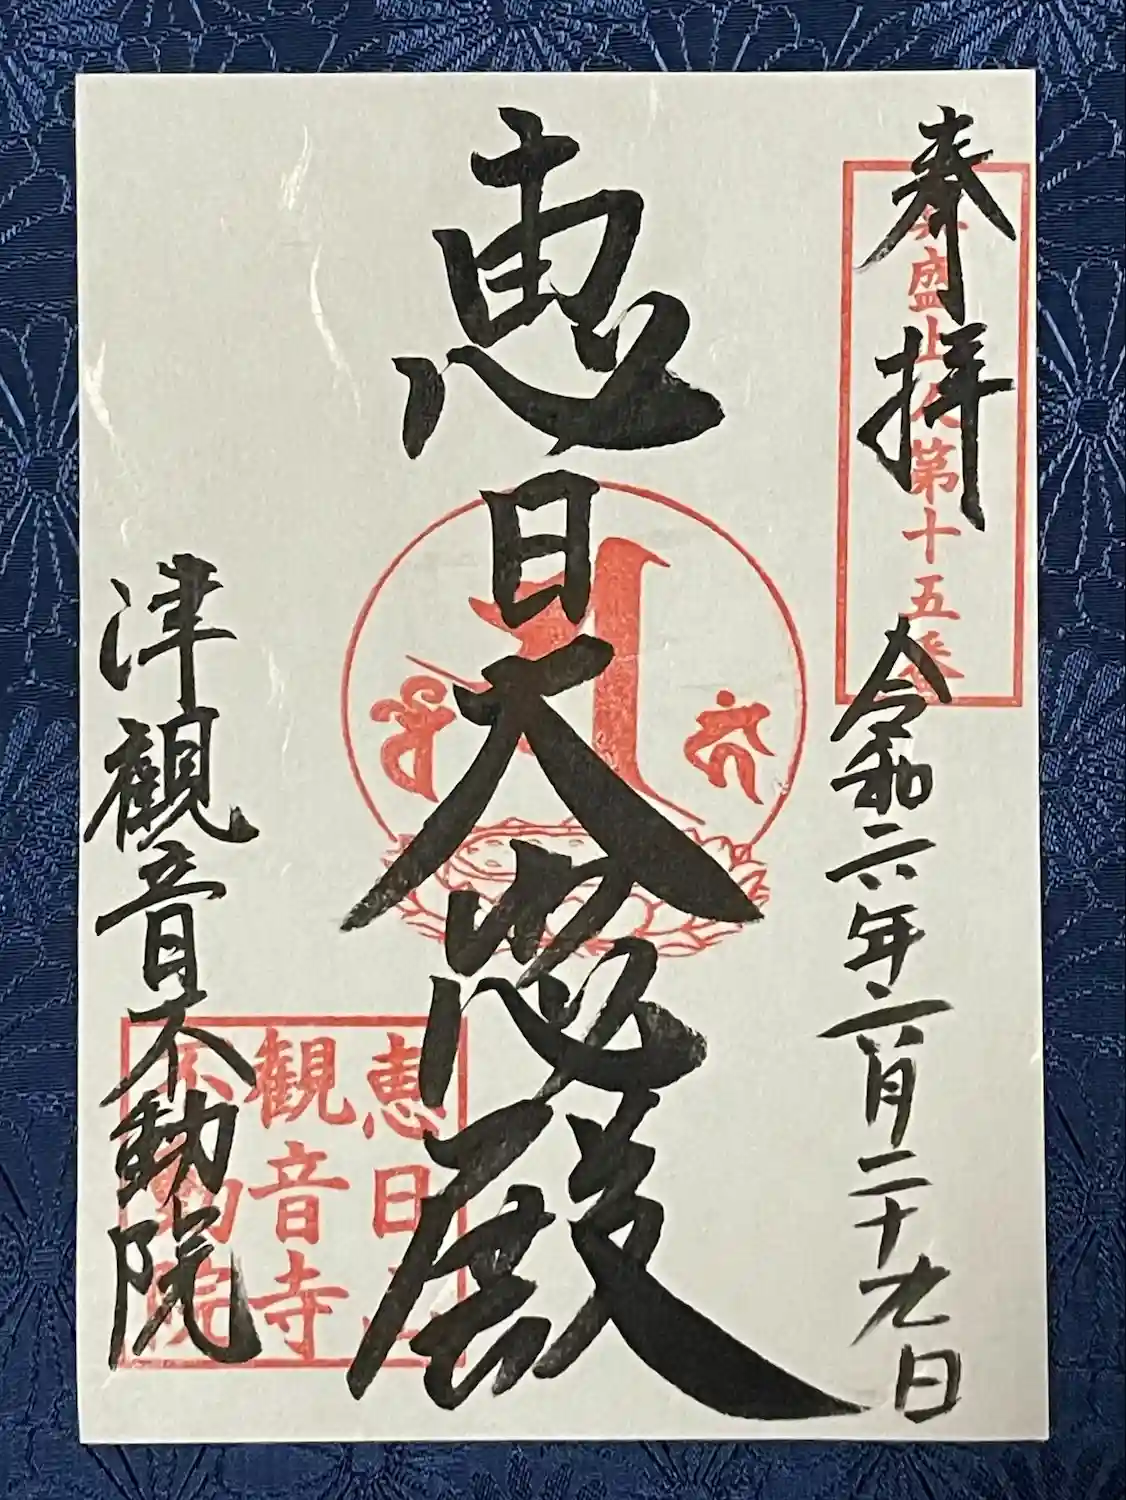 奉拝 令和六年六月二十九日
真盛上人第十五番
恵日大悲殿
津観音不動院
恵日山
観音寺
不動院